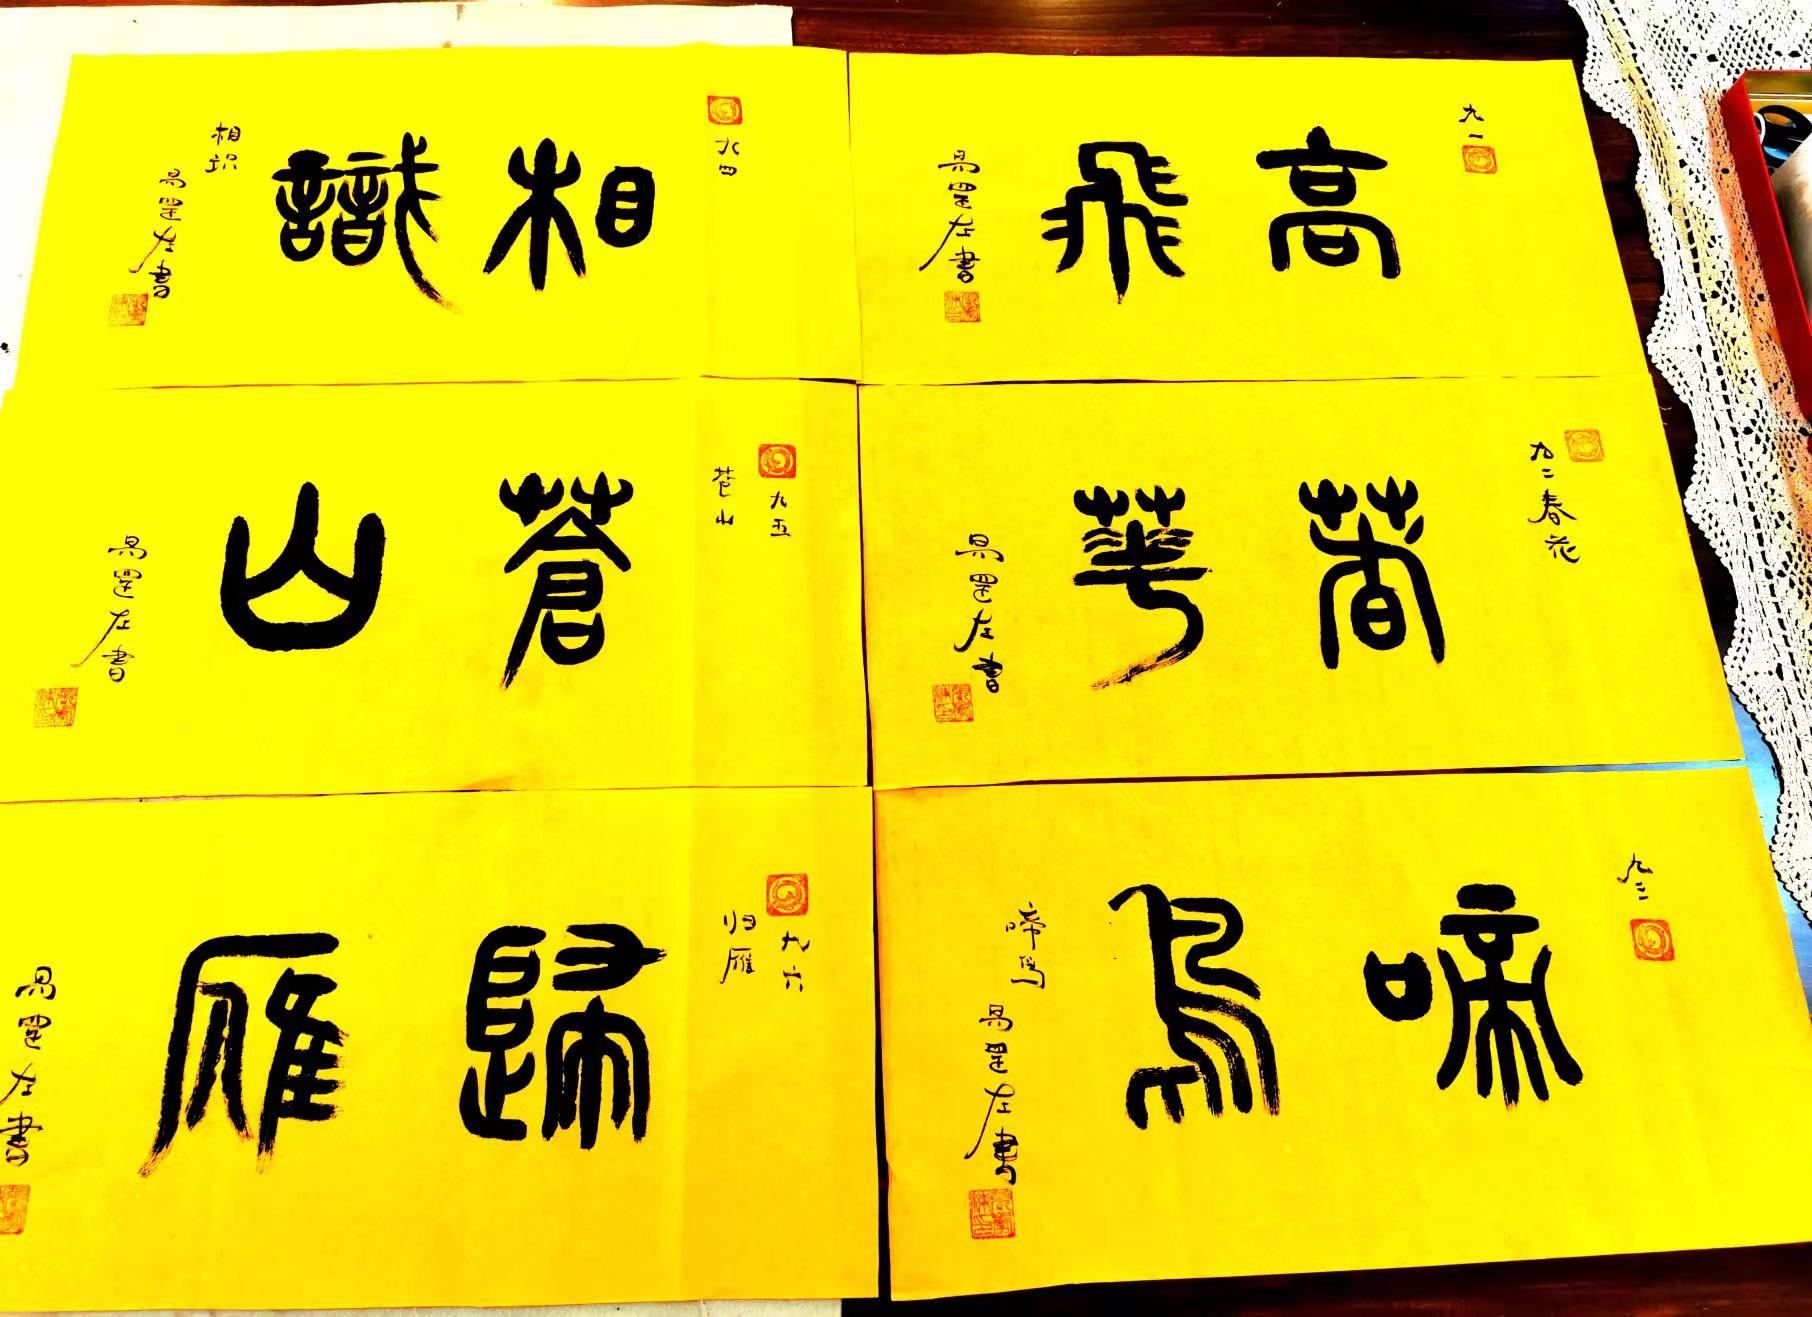 九一
高飛
易罡左書
九二春花
春華
易罡左書
九三
啼鳥
啼鸟
易罡左書
九四
相識
相识
易罡左書
九五
苍山
蒼山
易罡左書
九六
归雁
歸雁
易罡左書